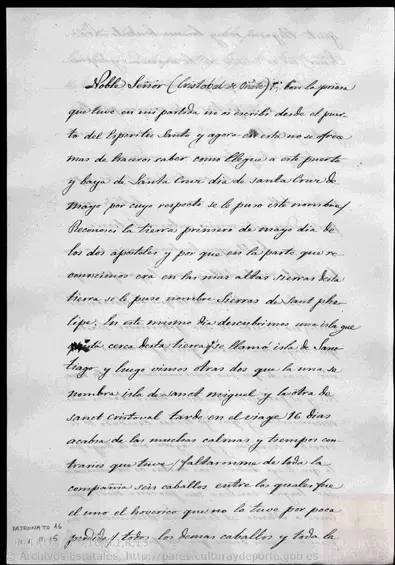 Noble Señor (Cristobal de Oñate): Con la priesa
que tuve en mi partida no os escribi desde el puer
to del Espiritu Santo y agora en esta no se ofrece
mas de haceros saber como llegue a este puerto
y baya de Santa Cruz dia de santa Cruz de
mayo por cuyo respecto se le puso este nombre/
Reconoci la tierra primero de mayo dia de
los dos apostoles y por que en la parte que re
conocimos era en las mas altas sierras desta
tierra se le puso nombre Sierras de Sant phe
lipe. En este mismo dia descubrimos una isla que
cerca desta tierra, se llamó isla de Sanc
tiago y luego vimos otras dos que la una se
nombra isla de sanct miguel y la otra de
sanct cristoval tarde en el viage 16 dias
acabsa de las muchas calmas y tiempos con
trarios que tuve/ faltaronme de toda la
compañia seis caballos entre los quales fue
el uno el hoverico que no la tuve por poca
perdida/ todos los demas caballos y toda la
PATRONATO 16
© Archivos Estatales, http://pares.culturaydeporte.gob.es